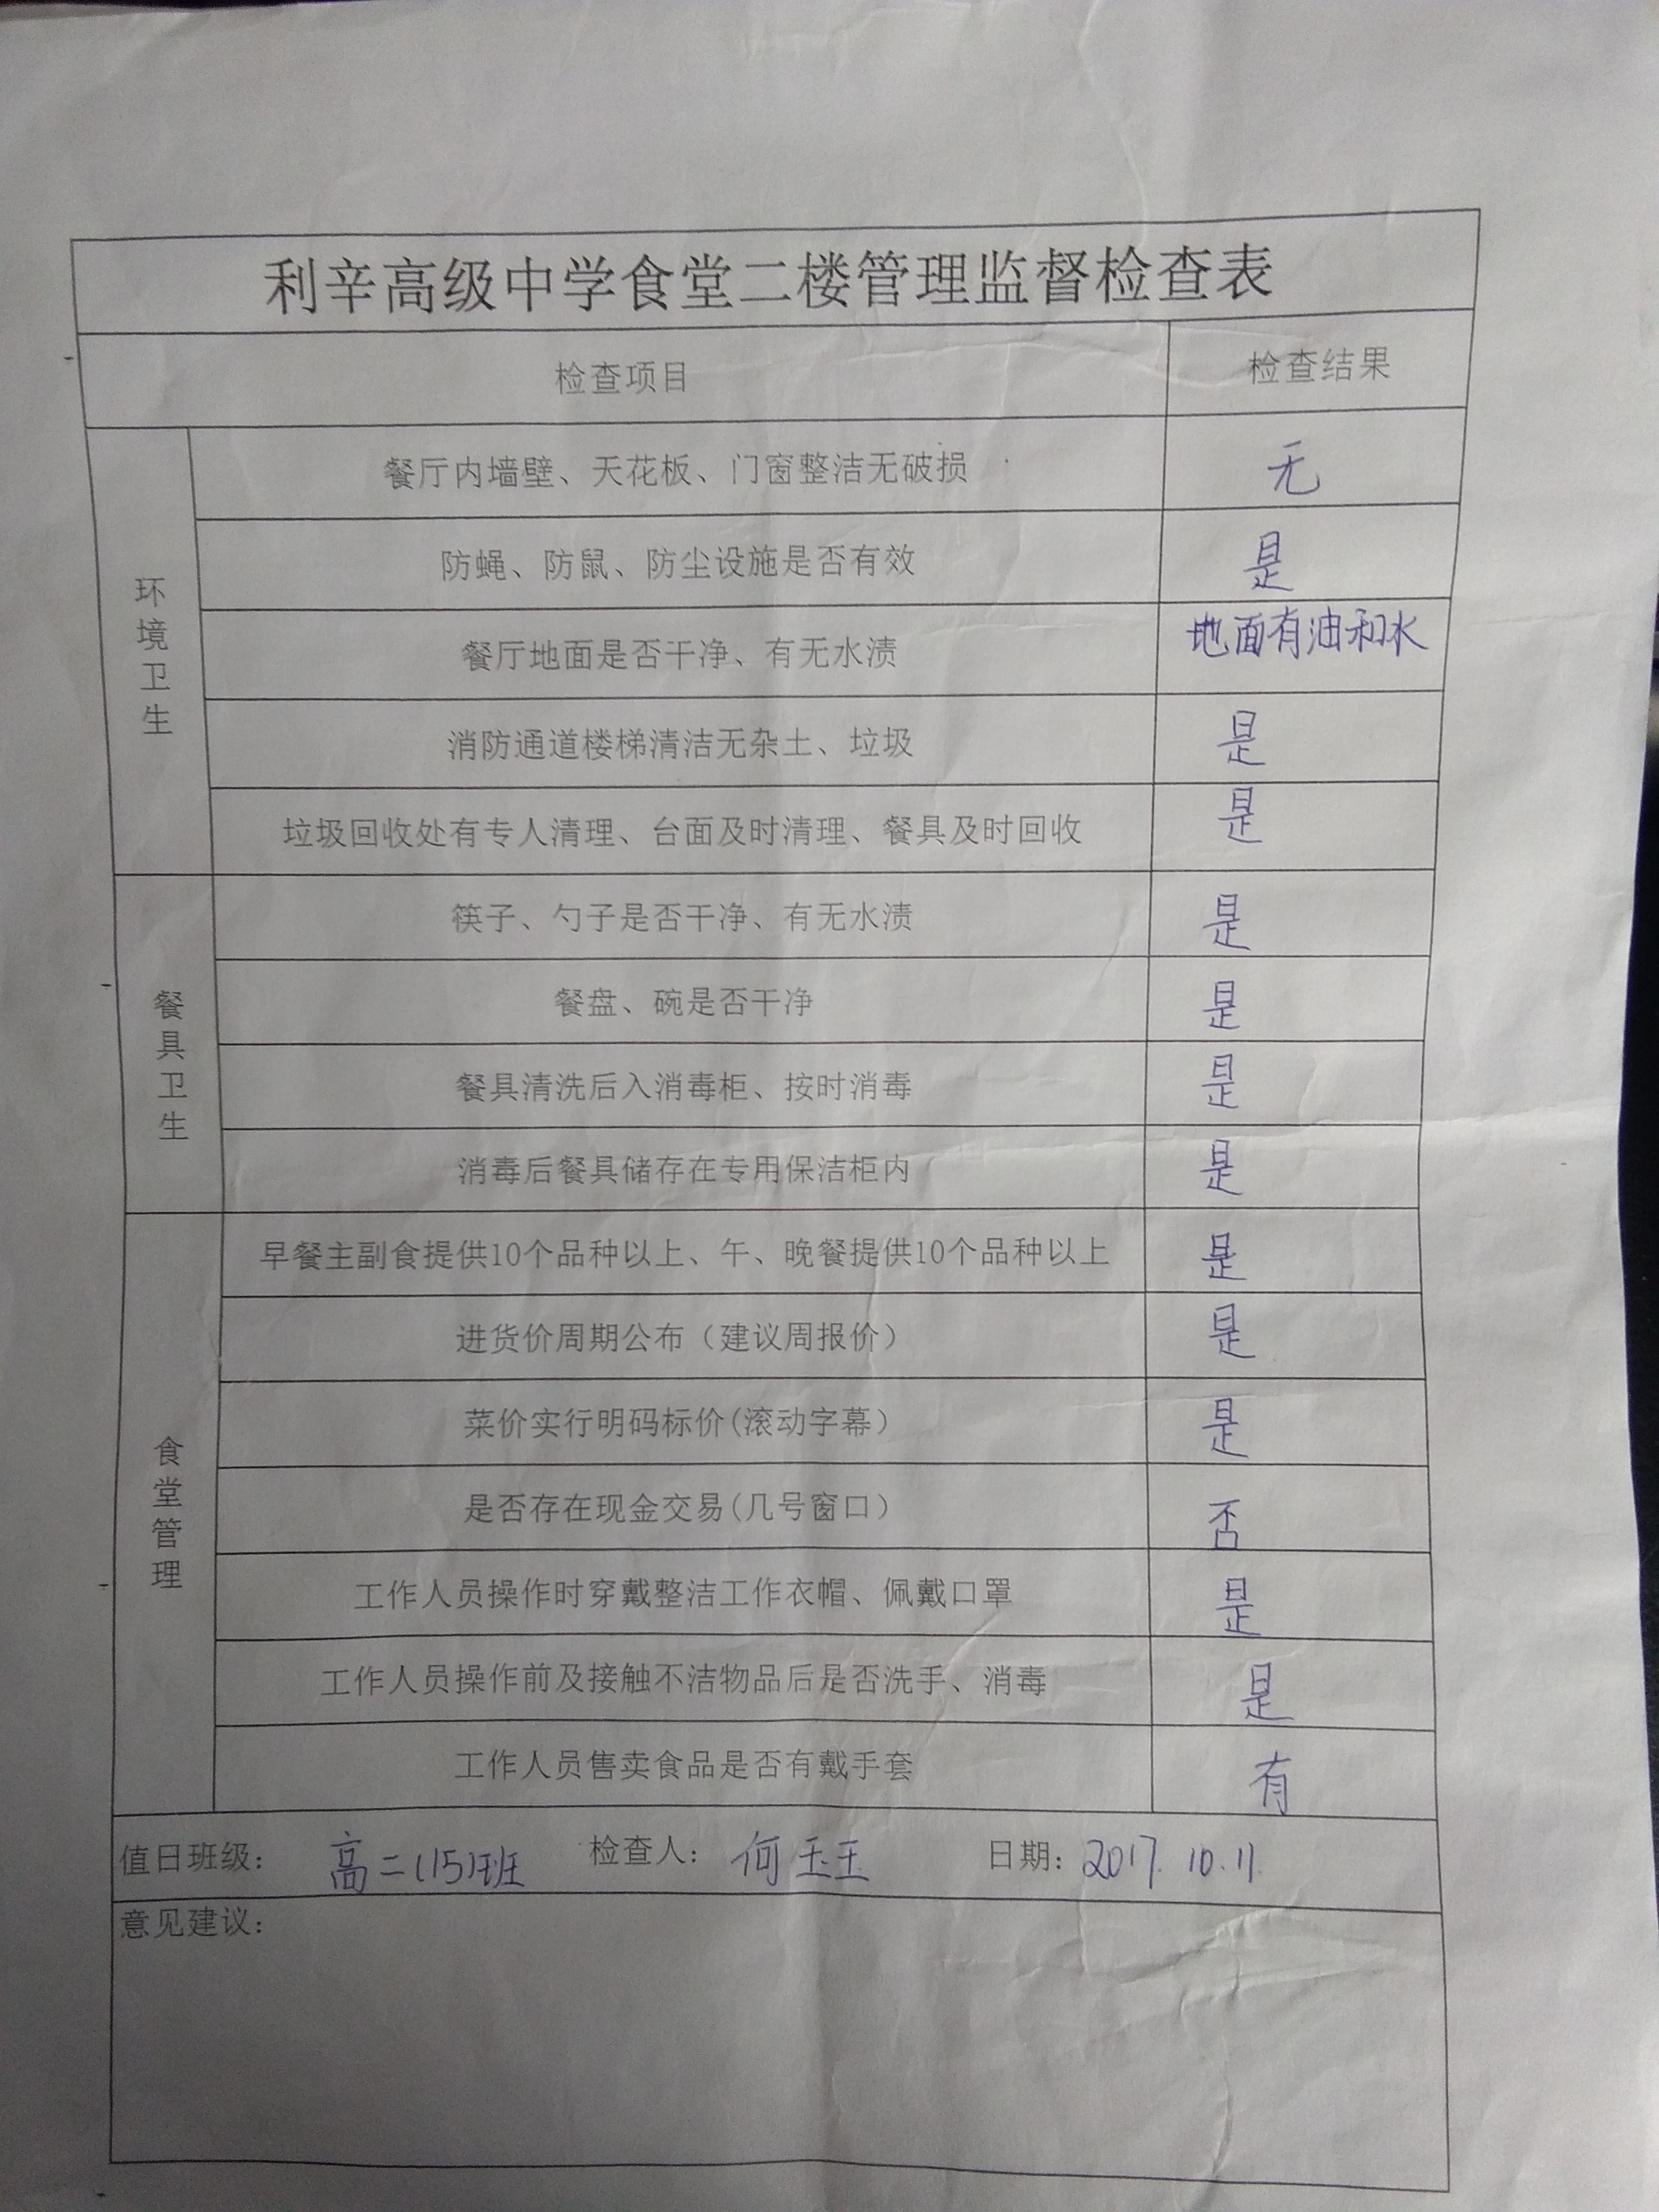 利辛高级中学食堂二楼管理监督检查表
检查项目 检查结果
环境卫生
餐厅内墙壁、天花板、门窗整洁无破损 无
防蝇、防鼠、防尘设施是否有效 是
餐厅地面是否干净、有无水渍 地面有油和水
消防通道楼梯清洁无杂土、垃圾 是
垃圾回收处有专人清理、台面及时清理、餐具及时回收 是
餐具卫生
筷子、勺子是否干净、有无水渍 是
餐盘、碗是否干净 是
餐具清洗后入消毒柜、按时消毒 是
消毒后餐具储存在专用保洁柜内 是
食堂管理
早餐主副食提供10个品种以上、午、晚餐提供10个品种以上 是
进货价周期公布（建议周报价） 是
菜价实行明码标价(滚动字幕） 是
是否存在现金交易(几号窗口） 否
工作人员操作时穿戴整洁工作衣帽、佩戴口罩 是
工作人员操作前及接触不洁物品后是否洗手、消毒 是
工作人员售卖食品是否有戴手套 有
值日班级： 高二(15)班 检查人： 何玉玉 日期：2017.10.11.
意见建议：